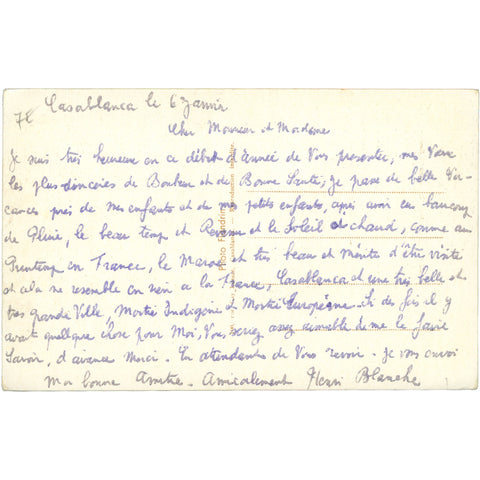 7E
Casablanca le 6 Janvir
Cher Monsieur et Madame
Je suis très heureuse en ce début d'Année de Vous présenter, mes Vœux
les plus sincères de Bonheur et de Bonne Santé, Je passe de belle Va-
cances près de mes enfants et de mes petits enfants, après avoir eu baucoup
de Pluie, le beau temp et Revenu et le Soleil et chaud, comme au
Printemp en France, le Maroc et très beau et mérite d'être visité
et cela ne resemble en rien a la France, Casablanca et une très belle et
très grande Ville, Moitié Indigène et Moitié Européenne. Si des fois il y
avait quelque chose pour Moi, Vous seriez assez aimable de me le faire
Savoir, d'avance Merci. En attendant de Vous revoir. Je vous envoi
Mon bonne Amitié. Amicalement Henri Blanche
Photo Flandrin
Reproduction interdite